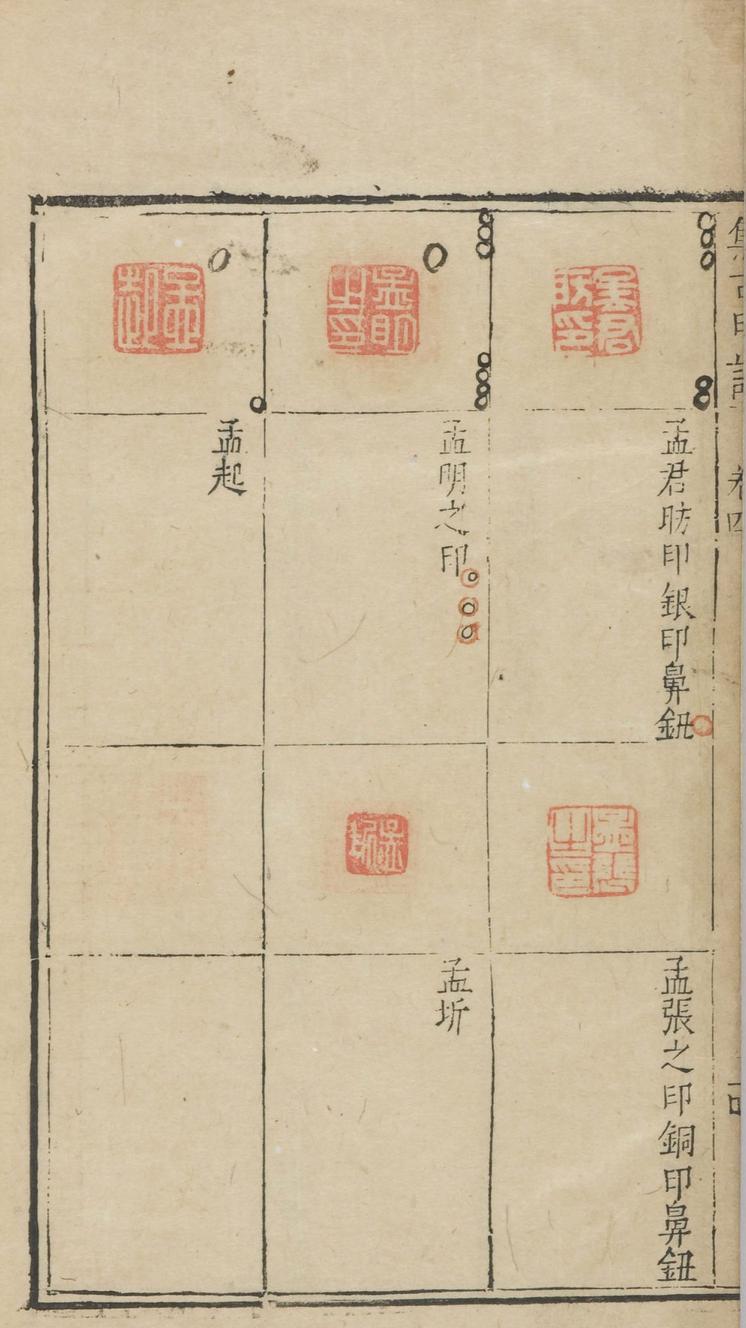 集古印譜 卷四
孟君昉印 銀印鼻鈕
孟明之印
孟起
孟張之印 銅印鼻鈕
孟圻